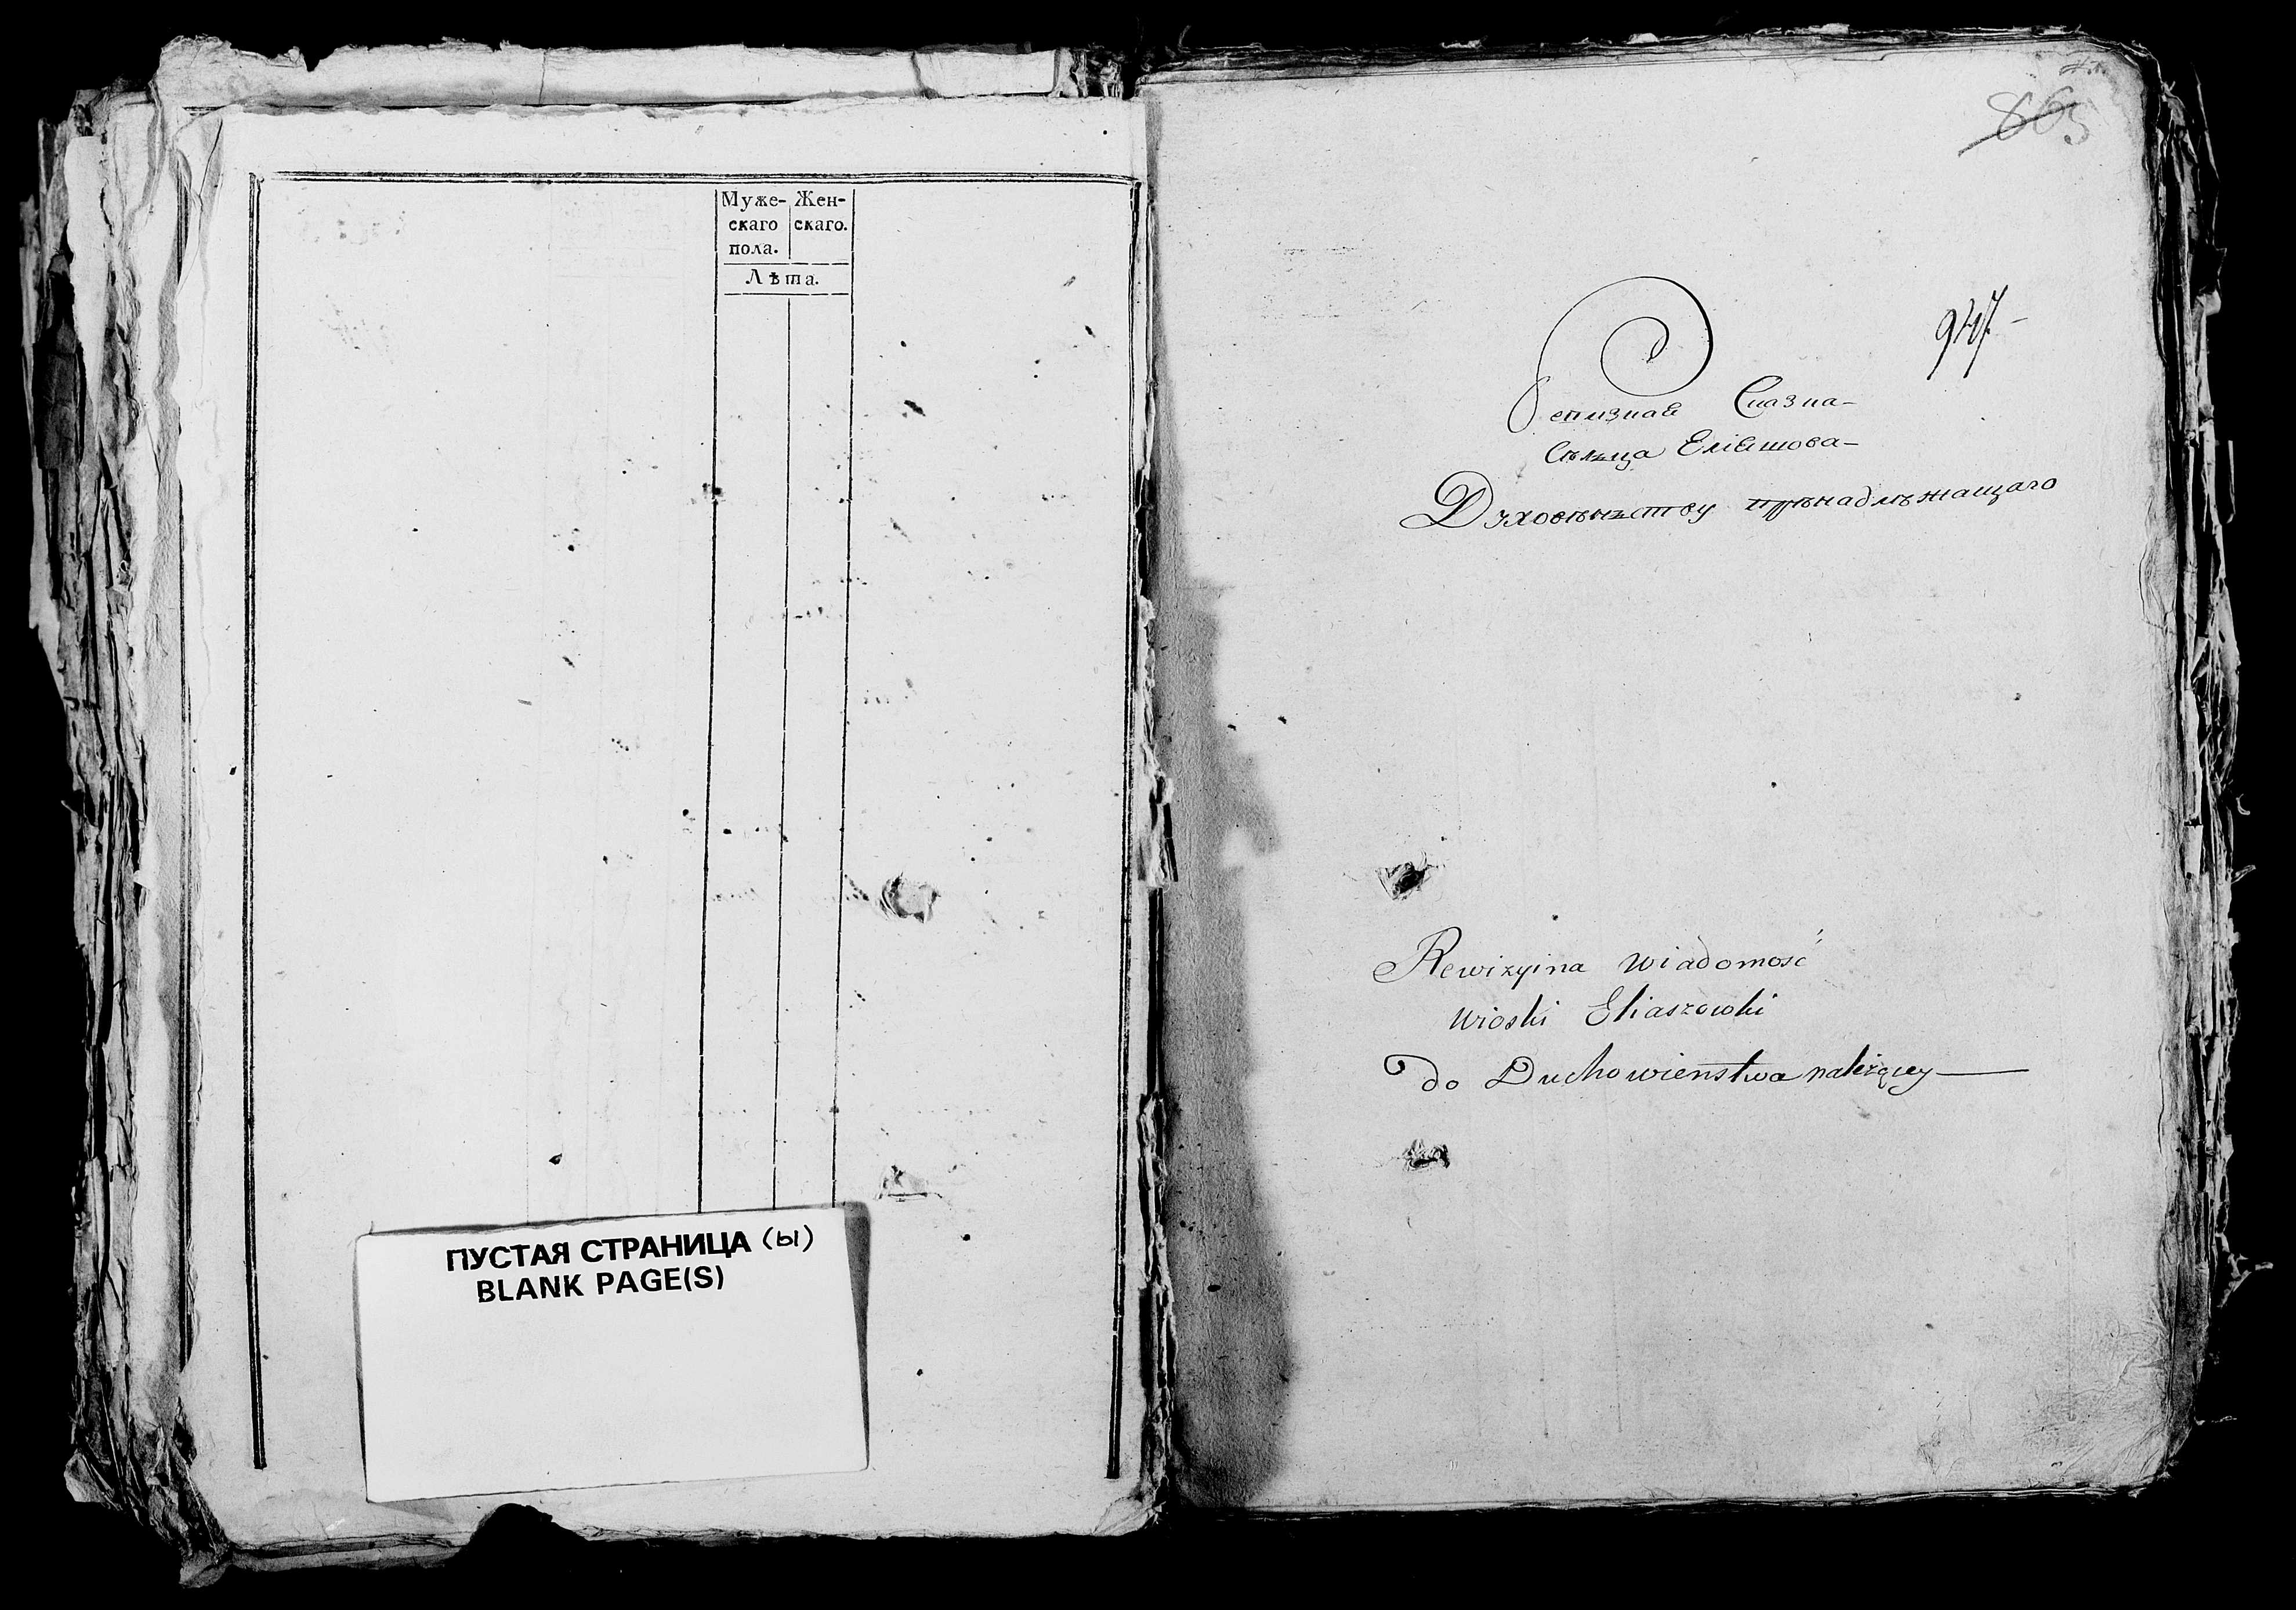 Муже- Жен-
скаго скаго.
пола.
Лѣта.
ПУСТАЯ СТРАНИЦА (Ы)
BLANK PAGE(S)
865
947 -
Ревизная Сказка-
Селца Еліяшова-
Духовенству
Rewizyina Wiadomość
Wioski Eliaszowki
do Duchowienstwa należącey